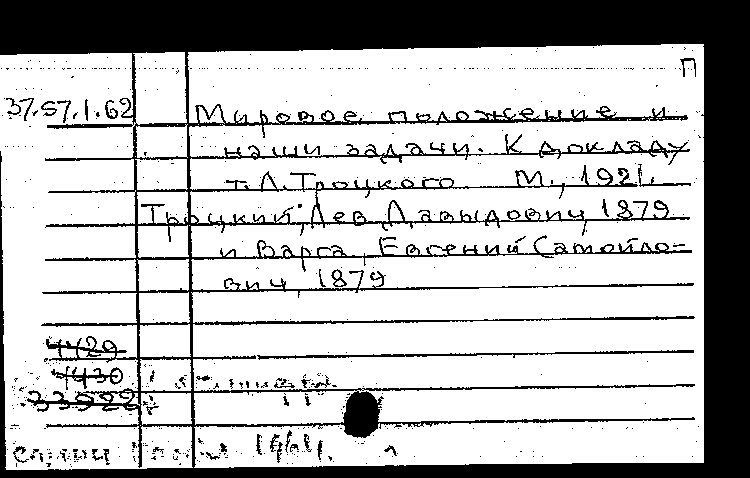 П
37.57.1.62 Мировое положение и
наши задачи. К докладу
т. Л. Троцкого М., 1921.
Троцкий, Лев Давыдович, 1879
и Варга, Евгений Самойло-
вич, 1879
4429
4430
33922
1964.